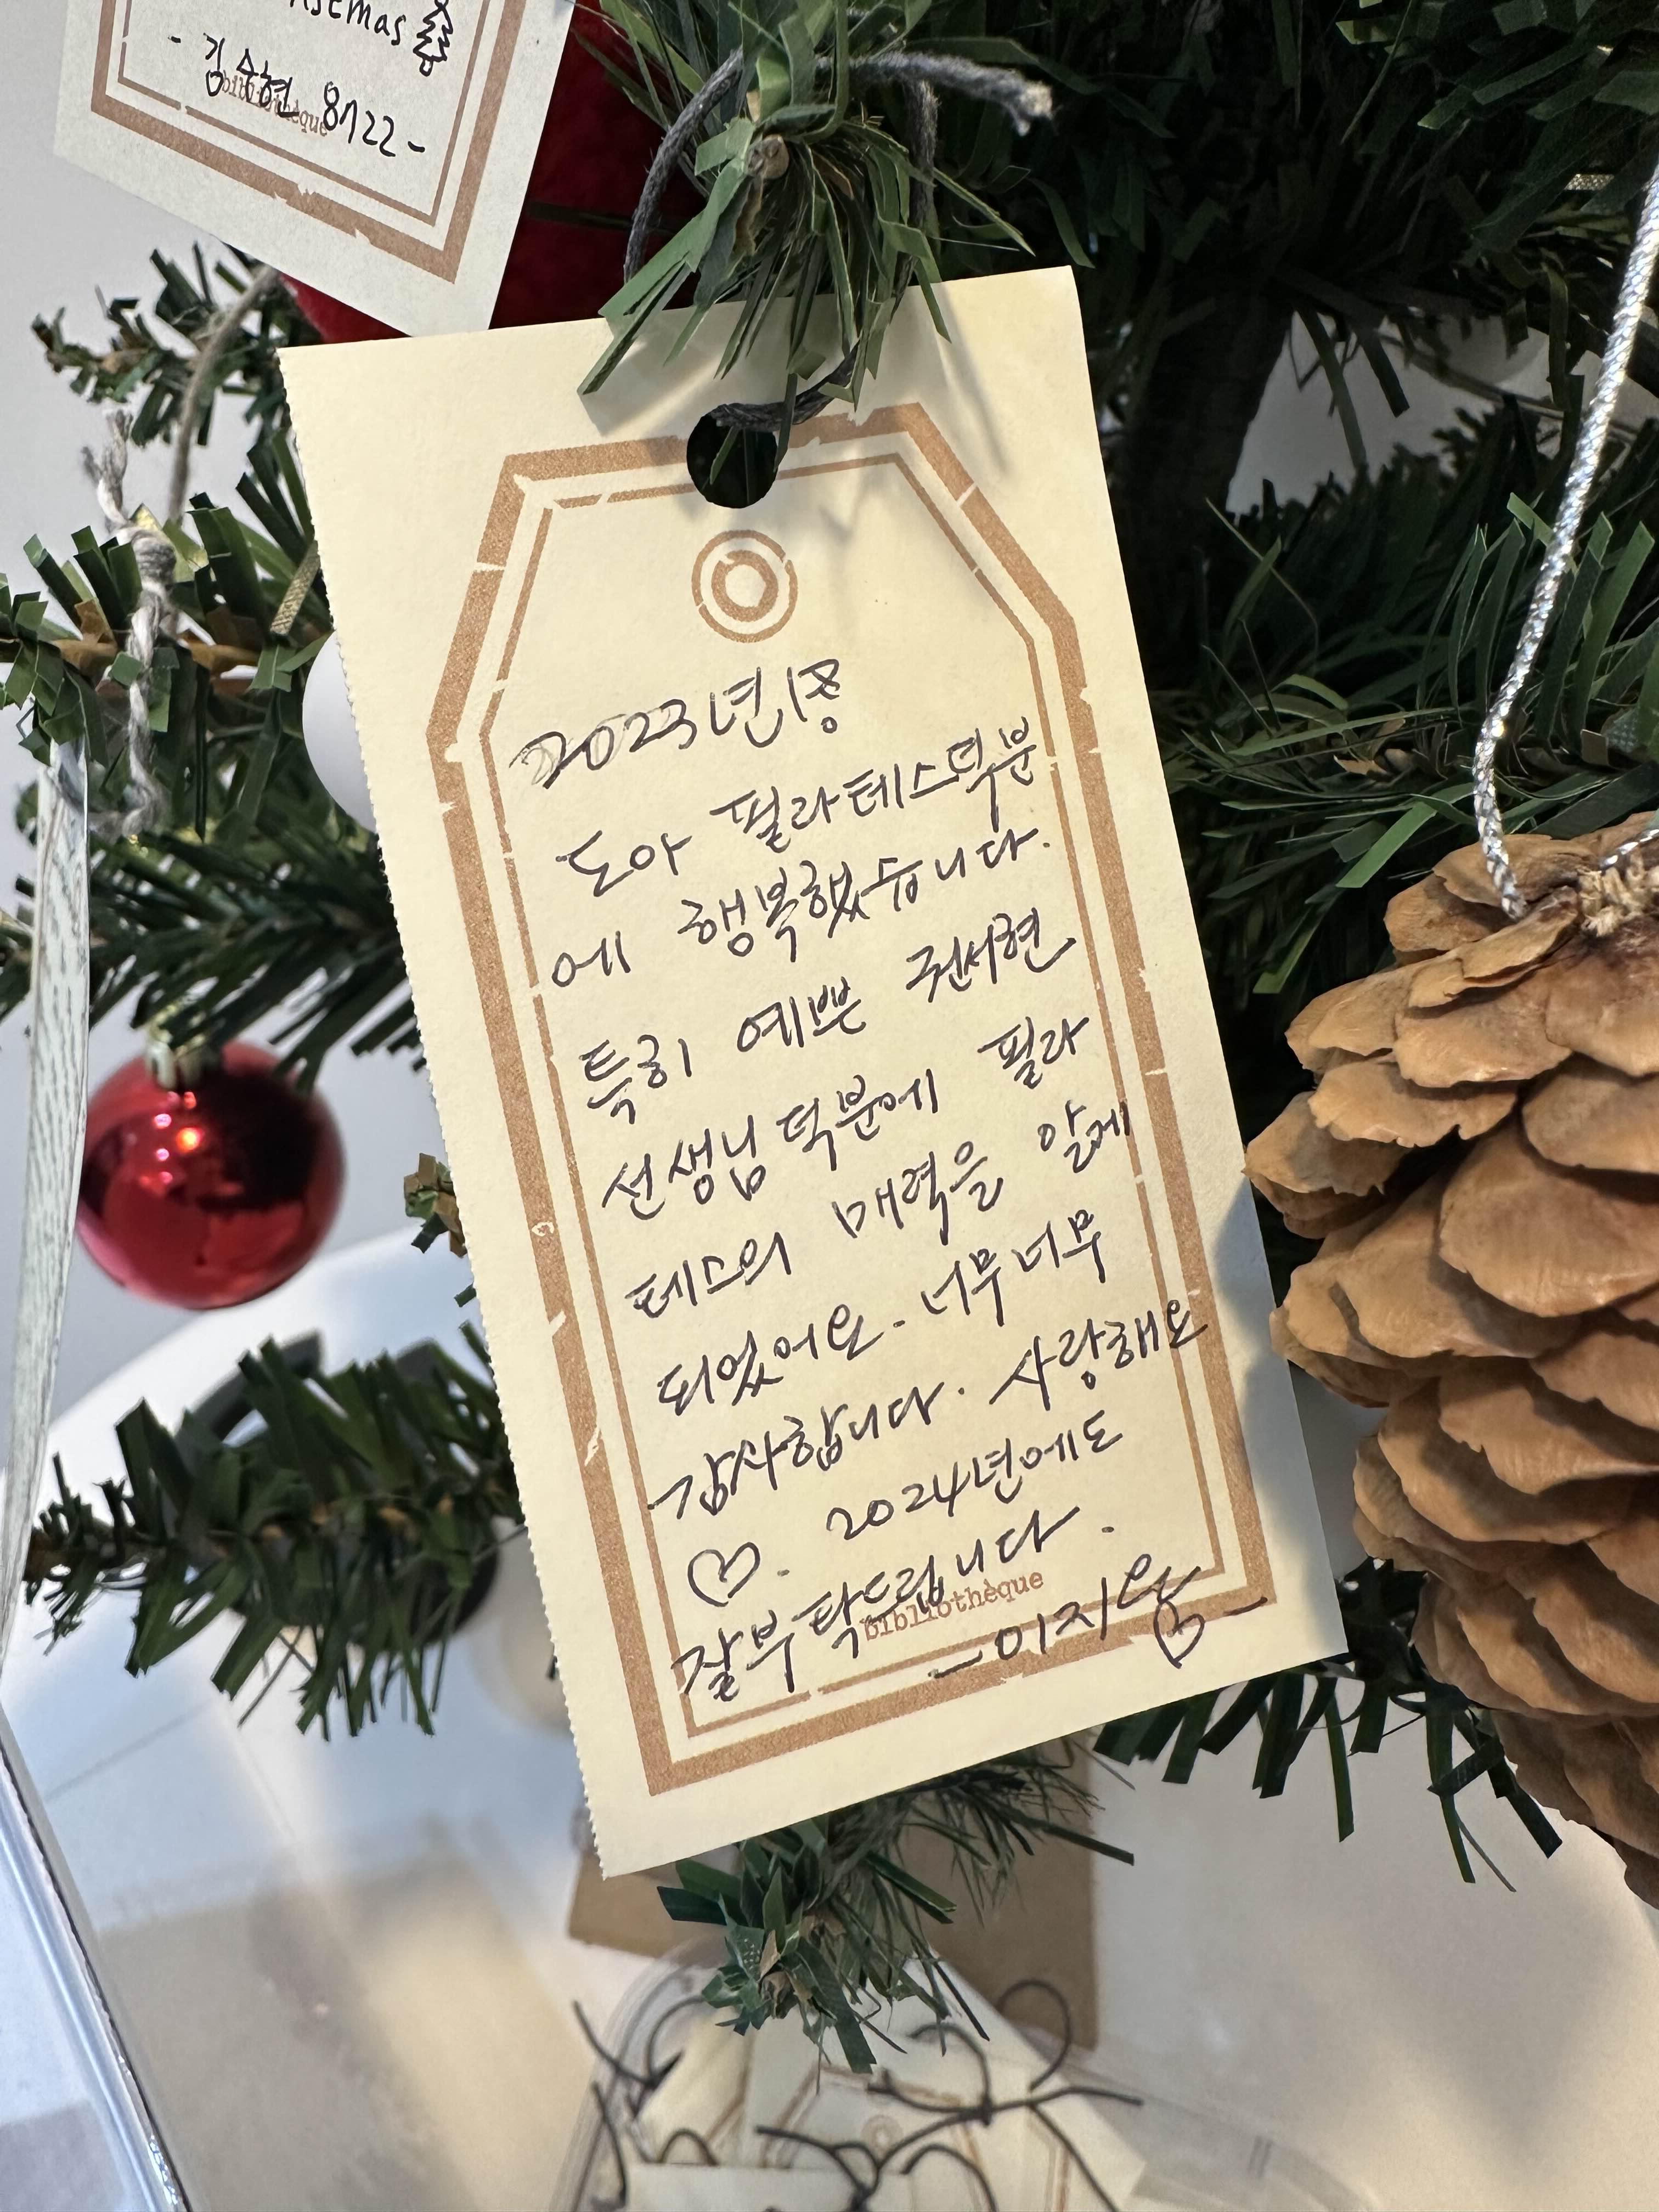 stmas
- 김수현 8722 -
bibliothèque
2023년
도아 필라테스덕분
에 행복했습니다.
특히 예쁜 권서현
선생님 덕분에 필라
테스의 매력을 알게
되었어요. 너무너무
감사합니다. 사랑해요
♡. 2024년에도
잘부탁드립니다.
bibliothèque